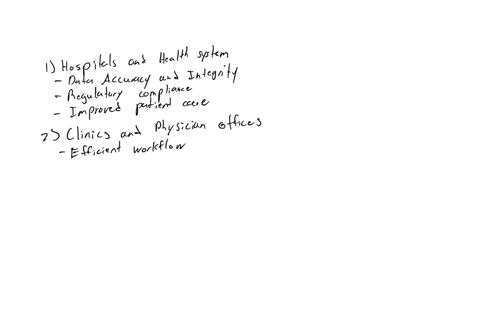 1) Hospitals and Health system
- Data Accuracy and Integrity
- Regulatory compliance
- Improved patient care
2) Clinics and Physician offices
- Efficient workflow